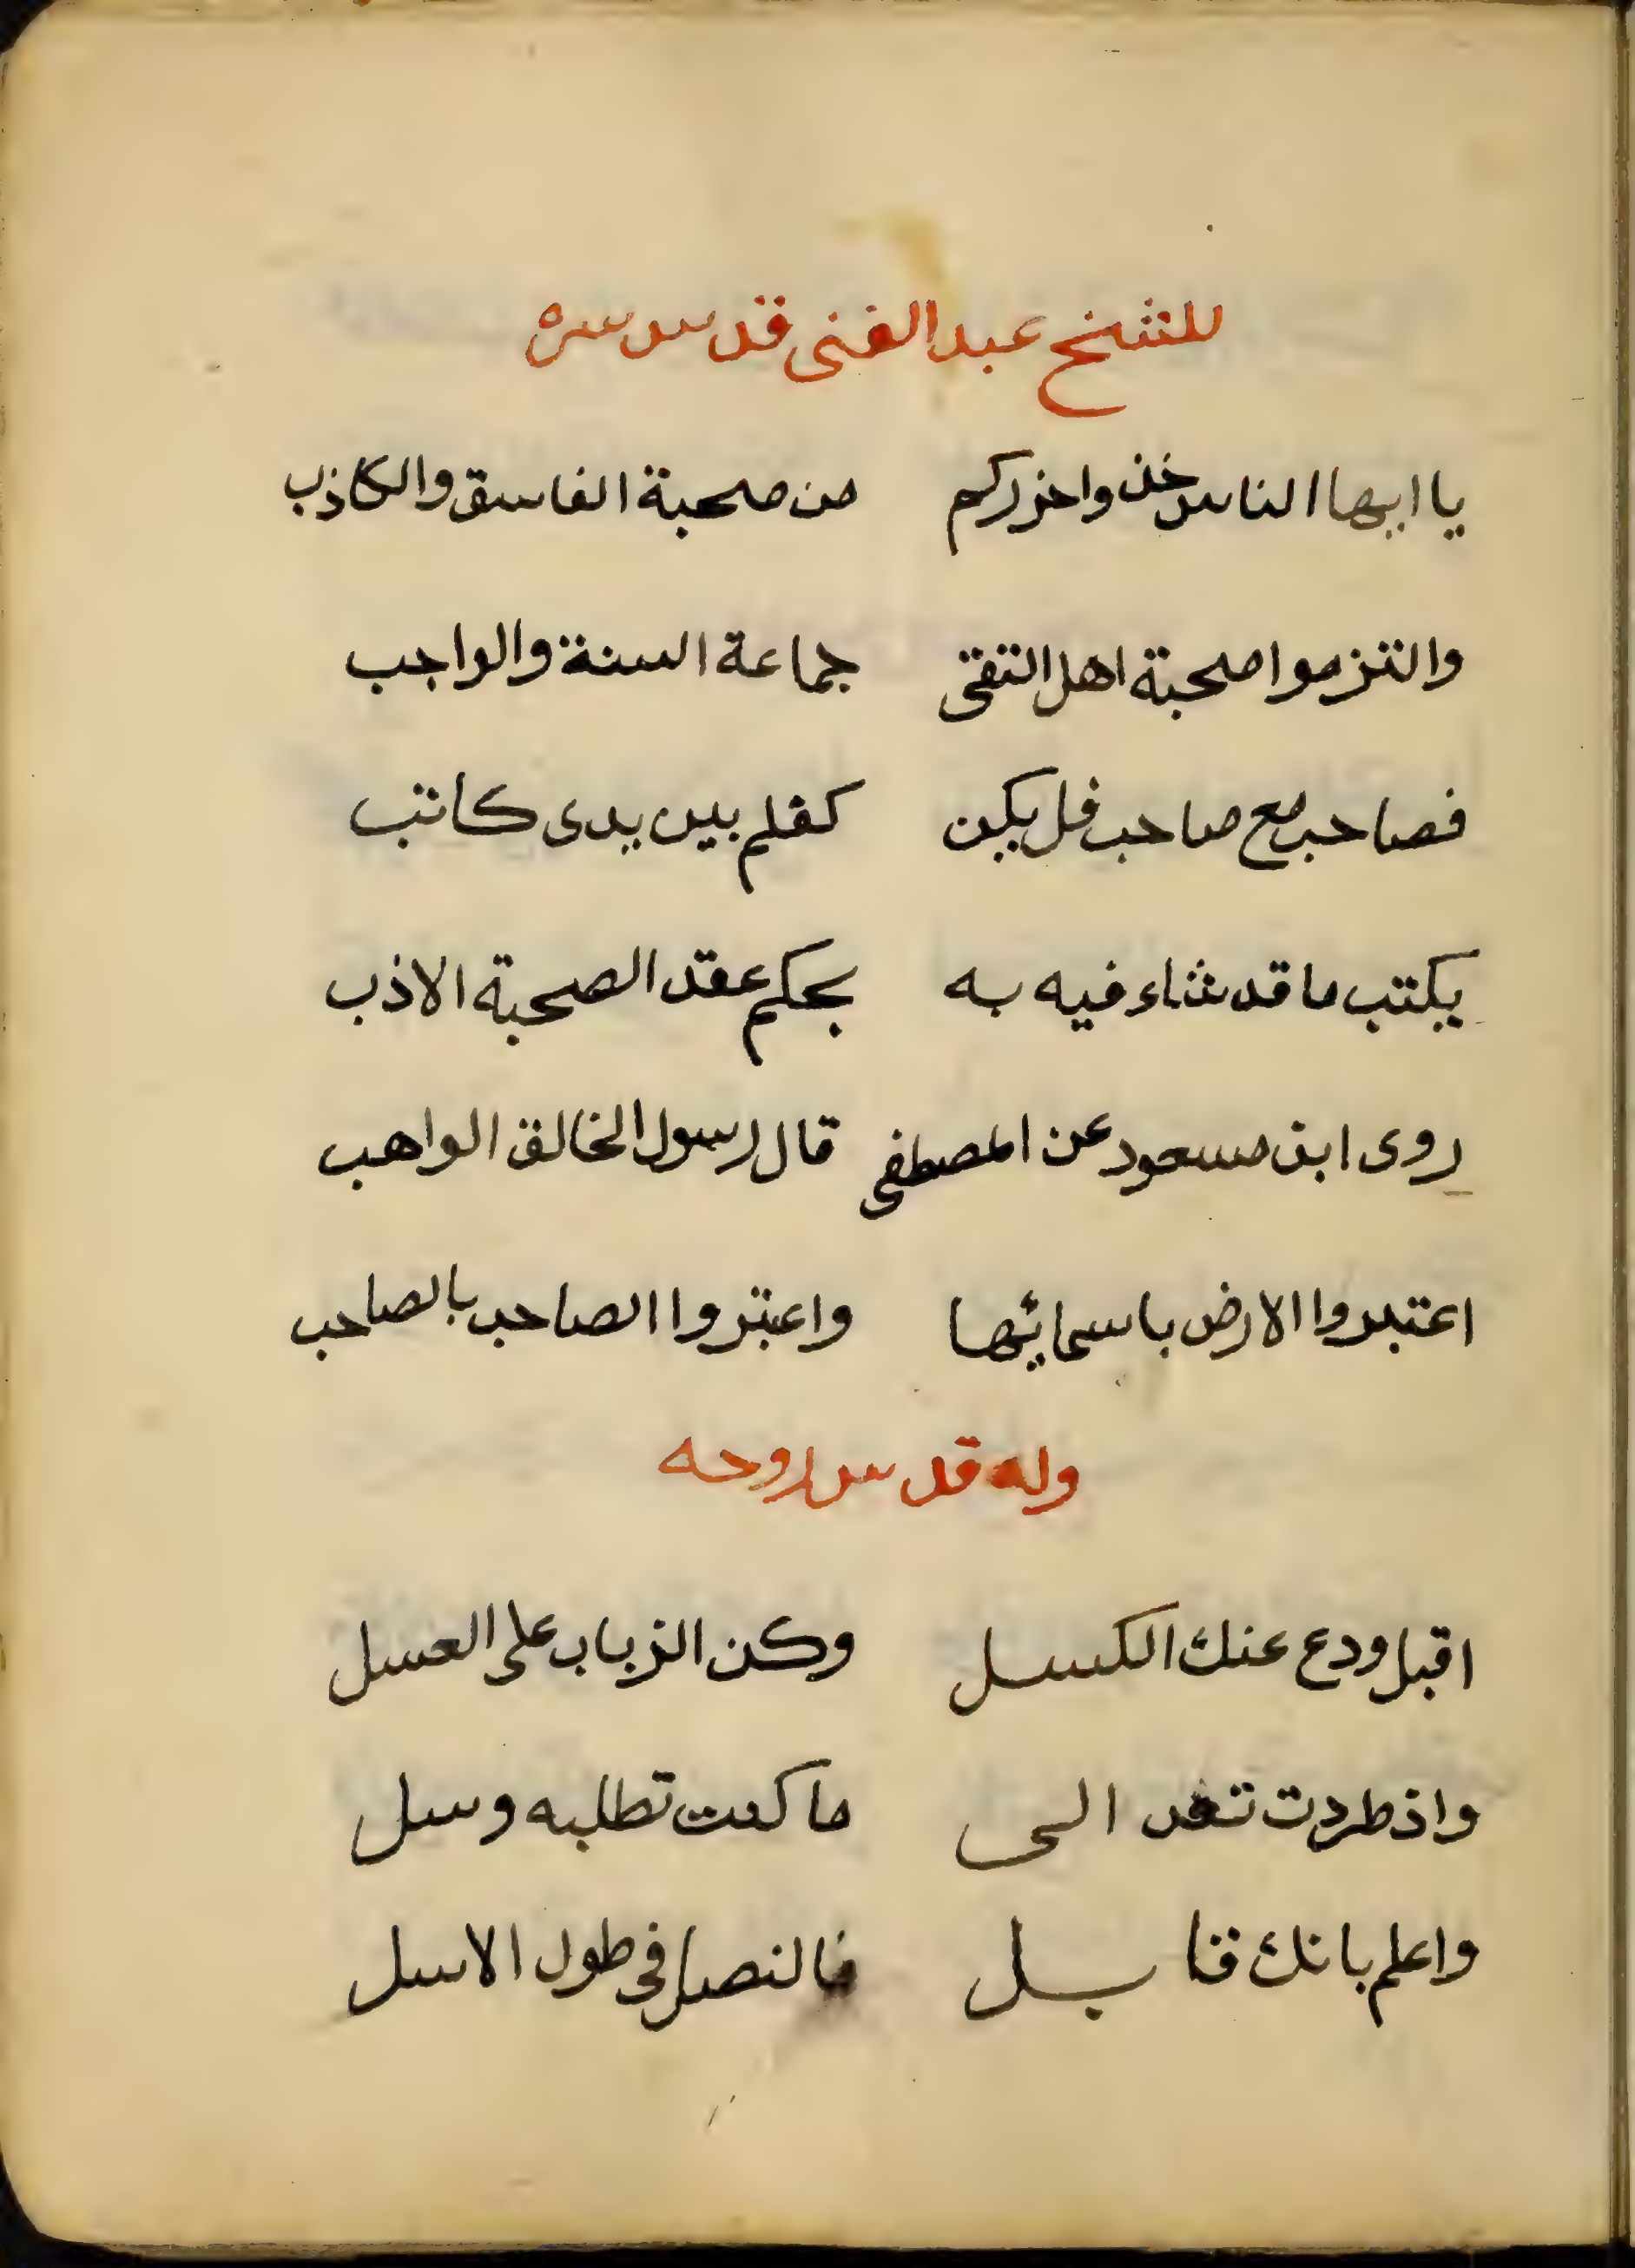 للشيخ عبد الغنى قدس سره
يا ايها الناس خذوا حزركم من صحبة الفاسق والكاذب
والتزموا صحبة اهل التقى جماعة السنة والواجب
فصاحب مع صاحب فل يكن كقلم بين يدى كاتب
يكتب ما قد شاء فيه به بحكم عقد الصحبة الاذب
روى ابن مسعود عن المصطفى قال رسول الخالق الواهب
اعتبروا الارض باسمائها واعتبروا الصاحب بالصاحب
وله قدس روحه
اقبل ودع عنك الكسل وكن الزباب على العسل
واذ طردت فعد الى ما كنت تطلبه وسل
واعلم بانك قابل فالنصل فى طول الاسل